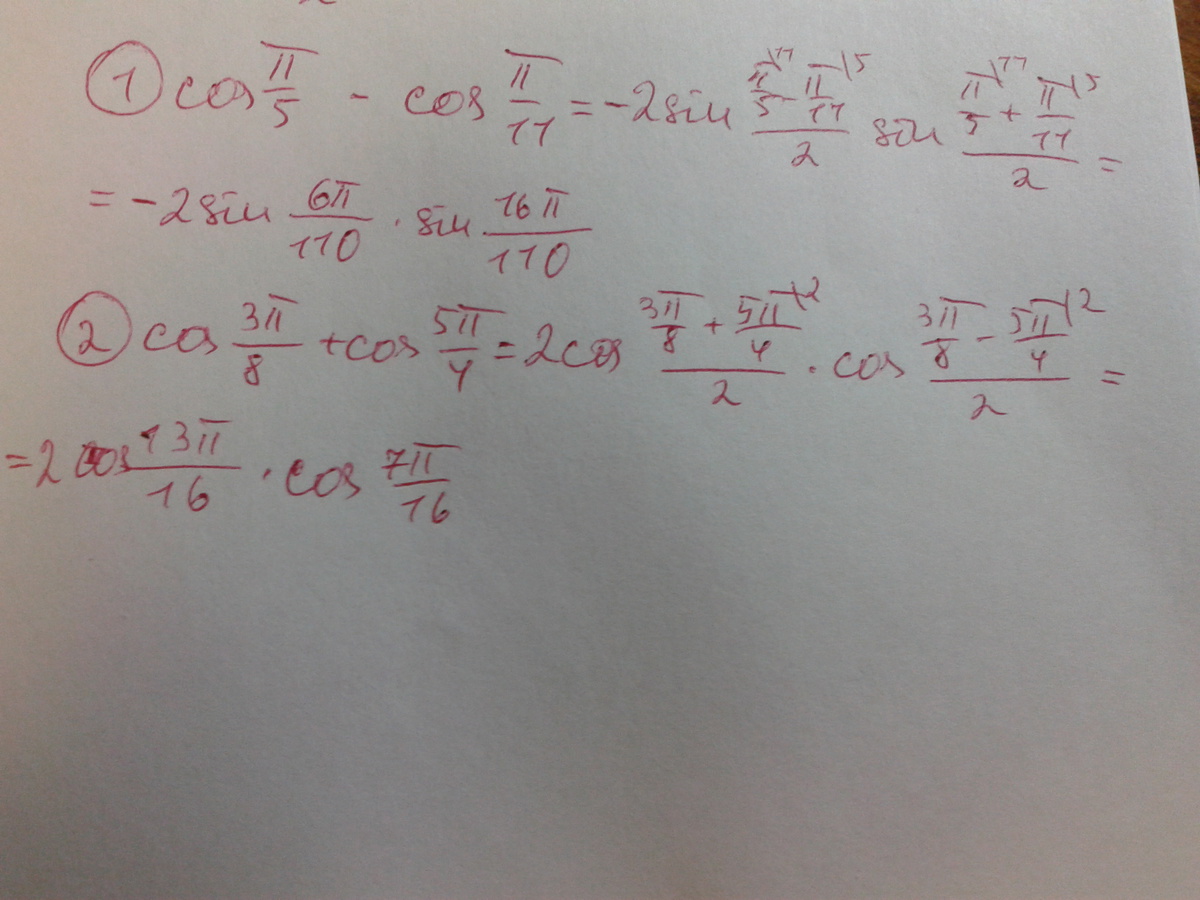 ① cos π/5 - cos π/11 = -2sin (π/5\11 - π/11\5)/2 sin (π/5\11 + π/11\5)/2 =
= -2sin 6π/110 · sin 16π/110
② cos 3π/8 + cos 5π/4 = 2cos (3π/8 + 5π/4\2)/2 · cos (3π/8 - 5π/4\2)/2 =
= 2cos 13π/16 · cos 7π/16